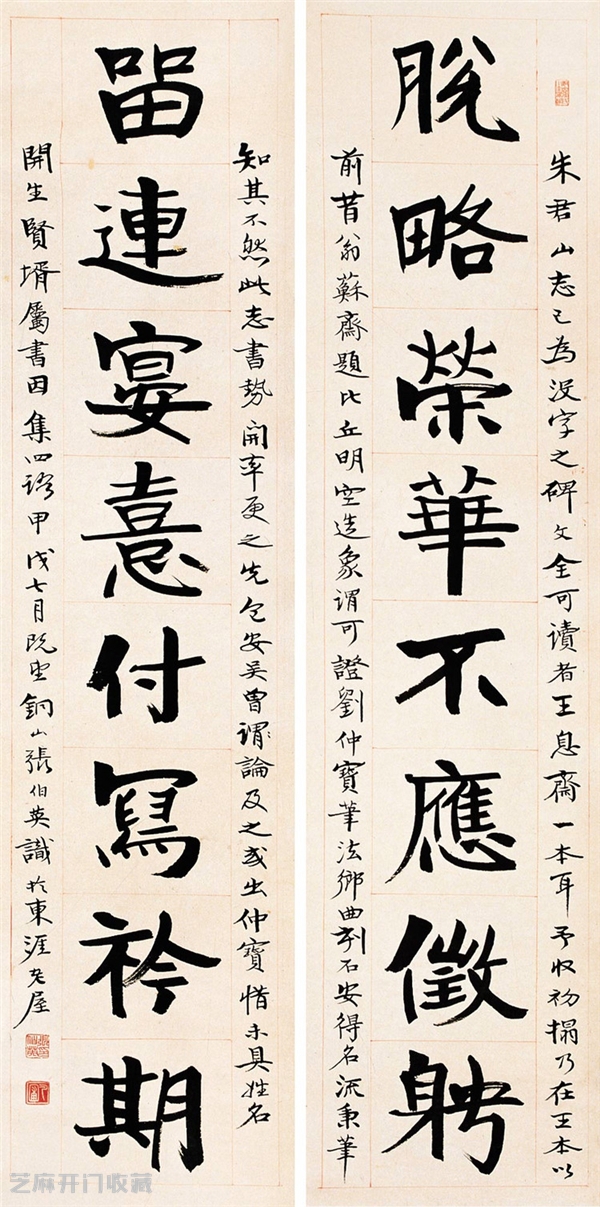 脫略榮華不應徵聘
朱君山志已為沒字之碑文全可讀者王息齋一本耳予收初搨乃在王本以
前昔翁蘇齋題比丘明空造象謂可證劉仲寶筆法鄉曲刻石安得名流秉筆
留連宴憙付寫衿期
知其不然此志書勢開率更之先包安吳曾謂論及之或出仲寶惜未具姓名
開生賢壻屬書因集四語甲戌七月既望銅山張伯英識於東涯老屋
芝麻开门收藏